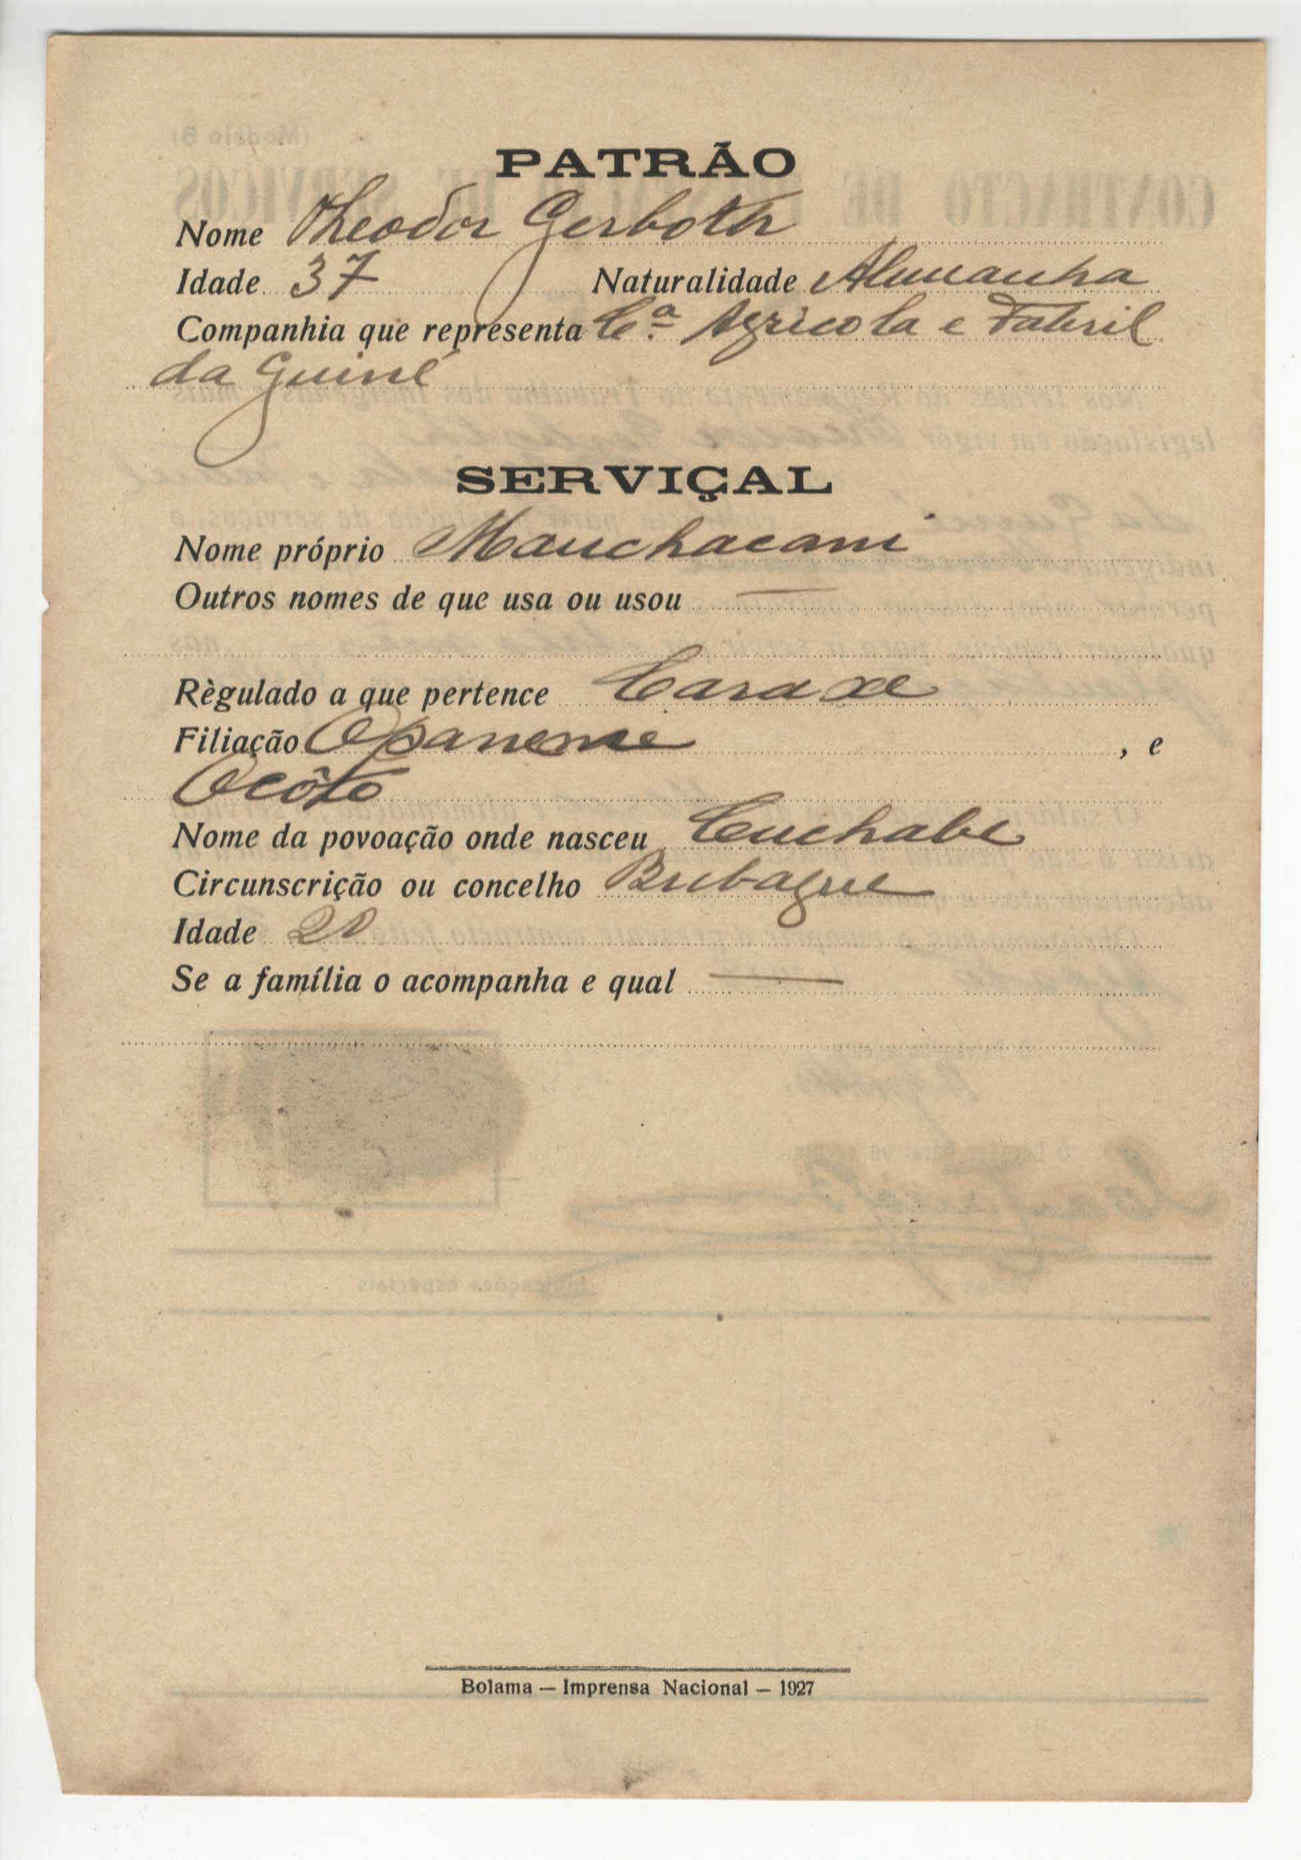 PATRÃO
Nome Theodor Gerboth
Idade 37 Naturalidade Alemanha
Companhia que representa Cª. Agricola e Fabril
da Guiné
SERVIÇAL
Nome próprio Manchacani
Outros nomes de que usa ou usou —
Règulado a que pertence Caraxe
Filiação Opaneme , e
Ocôto
Nome da povoação onde nasceu Cuchabe
Circunscrição ou concelho Bubaque
Idade 20
Se a família o acompanha e qual —
Bolama — Imprensa Nacional — 1927